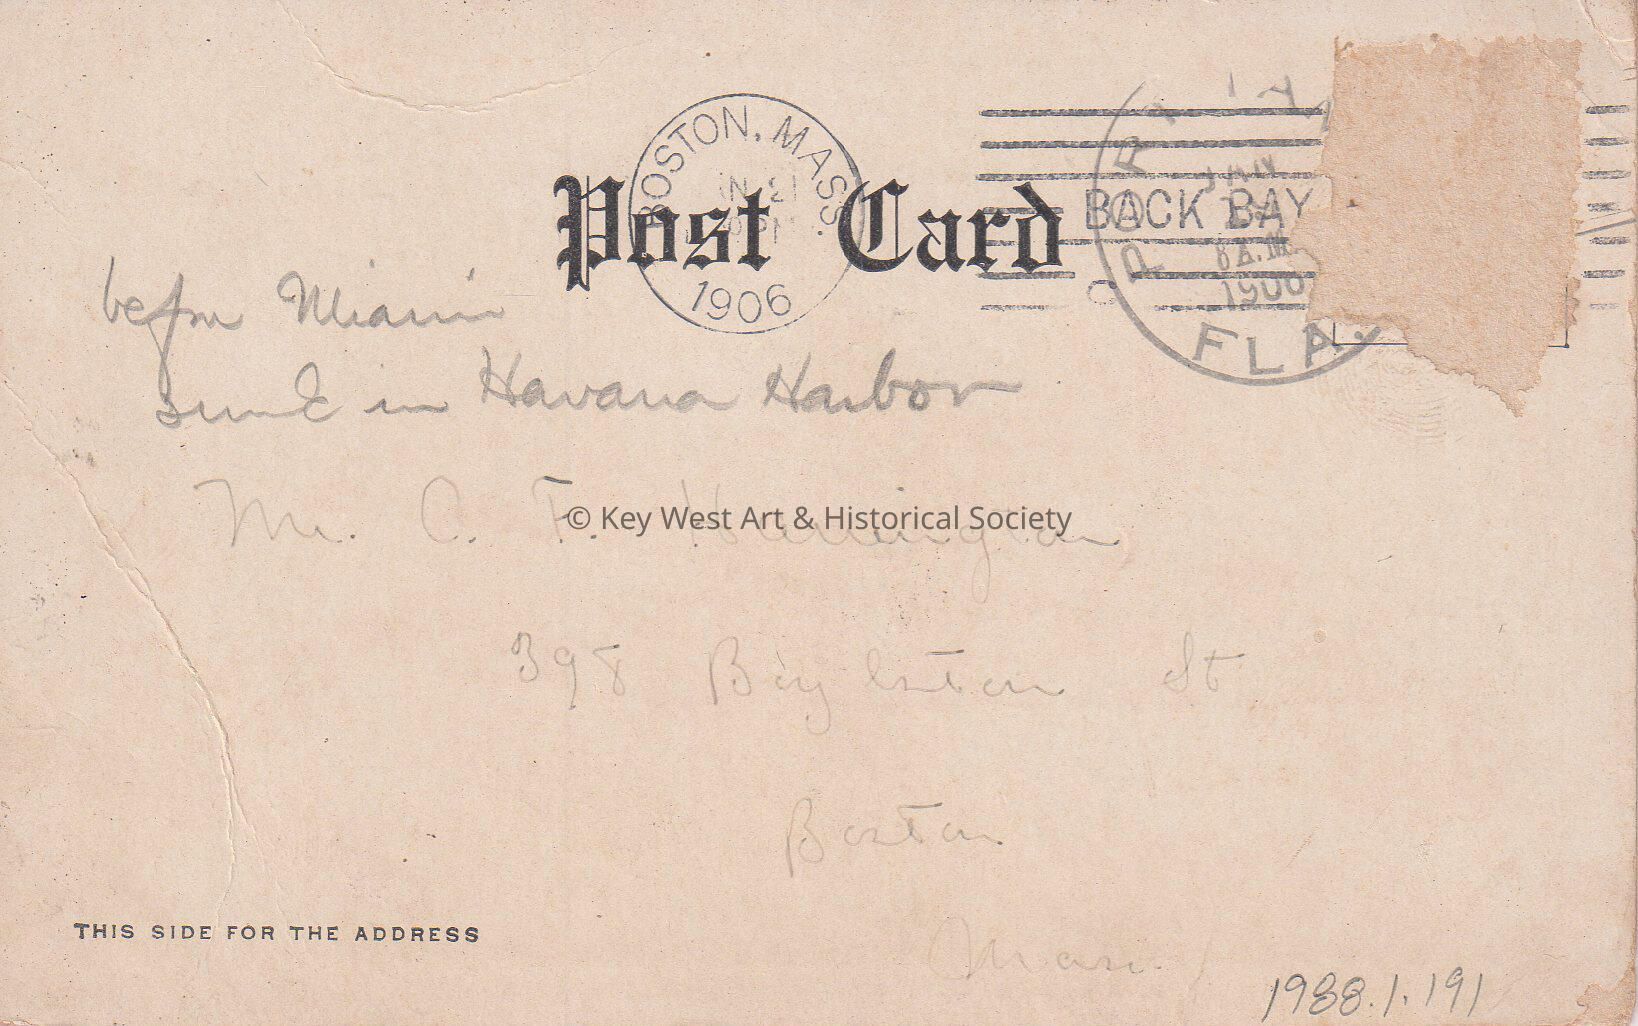 BOSTON, MASS.
1906
BACK BAY
JAN
8 A.M.
1906
FLA.
Post Card
before Miami
sunk in Havana Harbor
Mr. C. F.
© Key West Art & Historical Society
398 Boylston St
Boston
Mass.
THIS SIDE FOR THE ADDRESS
1988.1.191